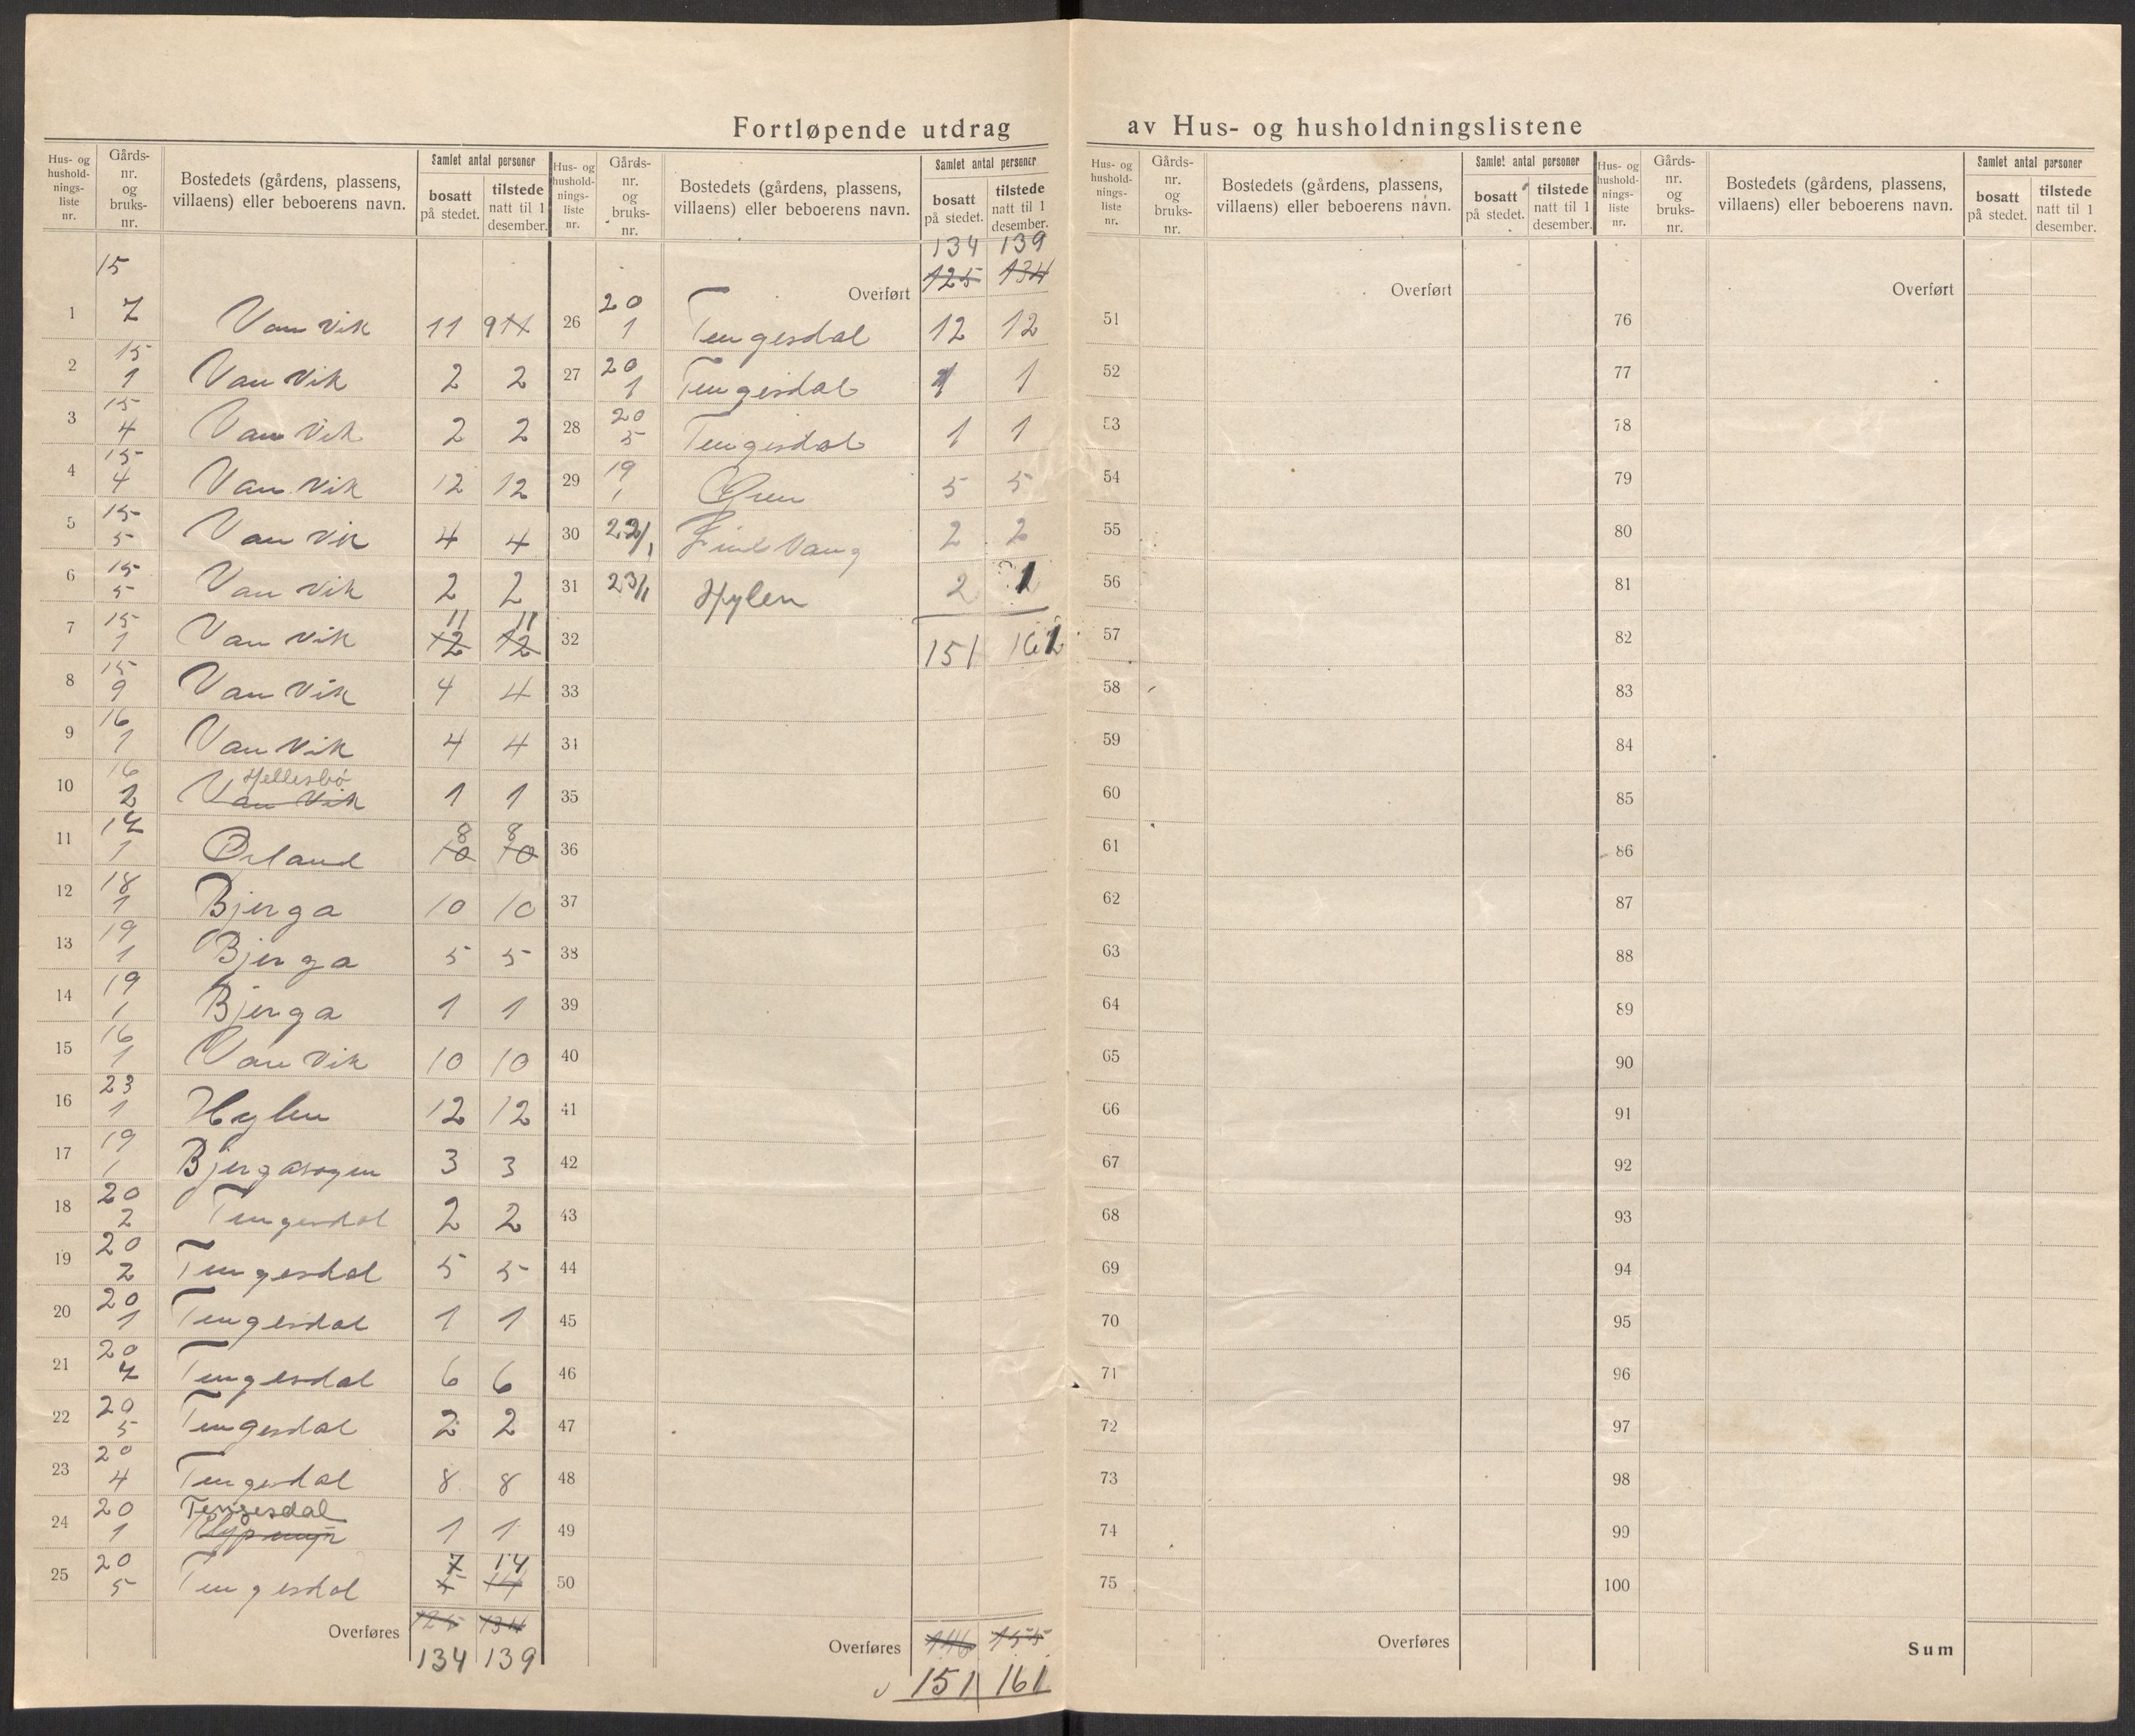 Fortløpende utdrag av Hus- og husholdningslistene
Hus- og husholdnings-liste nr. Gårds-nr. og bruks-nr. Bostedets (gårdens, plassens, villaens) eller beboerens navn. Samlet antal personer bosatt på stedet. tilstede natt til 1 desember.
15
1 7 Vanvik 11 9 11
2 15 1 Vanvik 2 2
3 15 4 Vanvik 2 2
4 15 4 Vanvik 12 12
5 15 5 Vanvik 4 4
6 15 5 Vanvik 2 2
11 11
7 15 1 Vanvik 12 12
8 15 9 Vanvik 4 4
9 16 1 Vanvik 4 4
Hellesbø
10 16 2 Vanvik 1 1
8 8
11 17 1 Ørland 10 10
12 18 1 Bjerga 10 10
13 19 1 Bjerga 5 5
14 19 1 Bjerga 1 1
15 16 1 Vanvik 10 10
16 23 1 Hylen 12 12
17 19 1 Bjergasogen 3 3
18 20 2 Tengesdal 2 2
19 20 2 Tengesdal 5 5
20 20 1 Tengesdal 1 1
21 20 7 Tengesdal 6 6
22 20 5 Tengesdal 2 2
23 20 4 Tengesdal 8 8
Tengesdal
24 20 1 1 1
7 14
25 20 5 Tengesdal
Overføres 125 134
134 139
Hus- og husholdnings-liste nr. Gårds-nr. og bruks-nr. Bostedets (gårdens, plassens, villaens) eller beboerens navn. Samlet antal personer bosatt på stedet. tilstede natt til 1 desember.
134 139
Overført 125 134
26 20 1 Tengesdal 12 12
27 20 1 Tengesdal 1 1
28 20 5 Tengesdal 1 1
29 19 1 5 5
30 22/1 2 2
31 23/1 Hylen 2 1
32 151 161
33
34
35
36
37
38
39
40
41
42
43
44
45
46
47
48
49
50
Overføres 146 155
151 161
Hus- og husholdnings-liste nr. Gårds-nr. og bruks-nr. Bostedets (gårdens, plassens, villaens) eller beboerens navn. Samlet antal personer bosatt på stedet. tilstede natt til 1 desember.
Overført
51
52
53
54
55
56
57
58
59
60
61
62
63
64
65
66
67
68
69
70
71
72
73
74
75
Overføres
Hus- og husholdnings-liste nr. Gårds-nr. og bruks-nr. Bostedets (gårdens, plassens, villaens) eller beboerens navn. Samlet antal personer bosatt på stedet. tilstede natt til 1 desember.
Overført
76
77
78
79
80
81
82
83
84
85
86
87
88
89
90
91
92
93
94
95
96
97
98
99
100
Sum